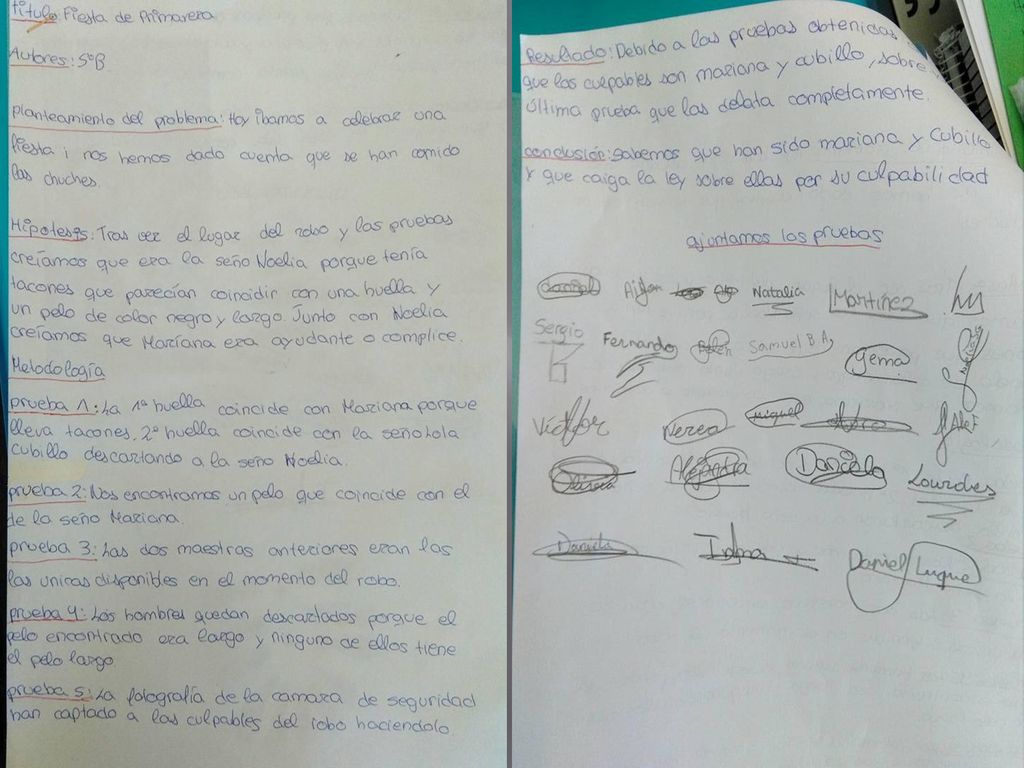 título: Fiesta de Primavera
Autores: 5ºB
Planteamiento del problema: Hoy íbamos a celebrar una
fiesta i nos hemos dado cuenta que se han comido
las chuches.
Hipotesis: Tras ver el lugar del robo y las pruebas
creíamos que era la seño Noelia porque tenía
tacones que parecían coincidir con una huella y
un pelo de color negro y largo. Junto con Noelia
creíamos que Mariana era ayudante o complice.
Metodología
prueba 1: La 1ª huella coincide con Mariana porque
lleva tacones, 2º huella coincide con la seño Lola
Cubillo descartando a la seño Noelia.
prueba 2: Nos encontramos un pelo que coincide con el
de la seño Mariana.
prueba 3: Las dos maestras anteriores eran las
las unicas disponibles en el momento del robo.
prueba 4: Los hombres quedan descartados porque el
pelo encontrado era largo y ninguno de ellos tiene
el pelo largo.
prueba 5: La fotografía de la camara de seguridad
han captado a las culpables del robo haciendolo
Resultado: Debido a las pruebas obtenidas
que las culpables son mariana y cubillo, sobre
última prueba que las delata completamente.
conclusión: Sabemos que han sido mariana y Cubillo
y que caiga la ley sobre ellas por su culpabilidad
ajuntamos las pruebas
Natalia Martínez
Sergio Fernando Belén Samuel B.A. Gema
Víctor Nerea Miguel Alef
Olivia Alejandra Daniela Lourdes
Daniela Inma Daniel Luque